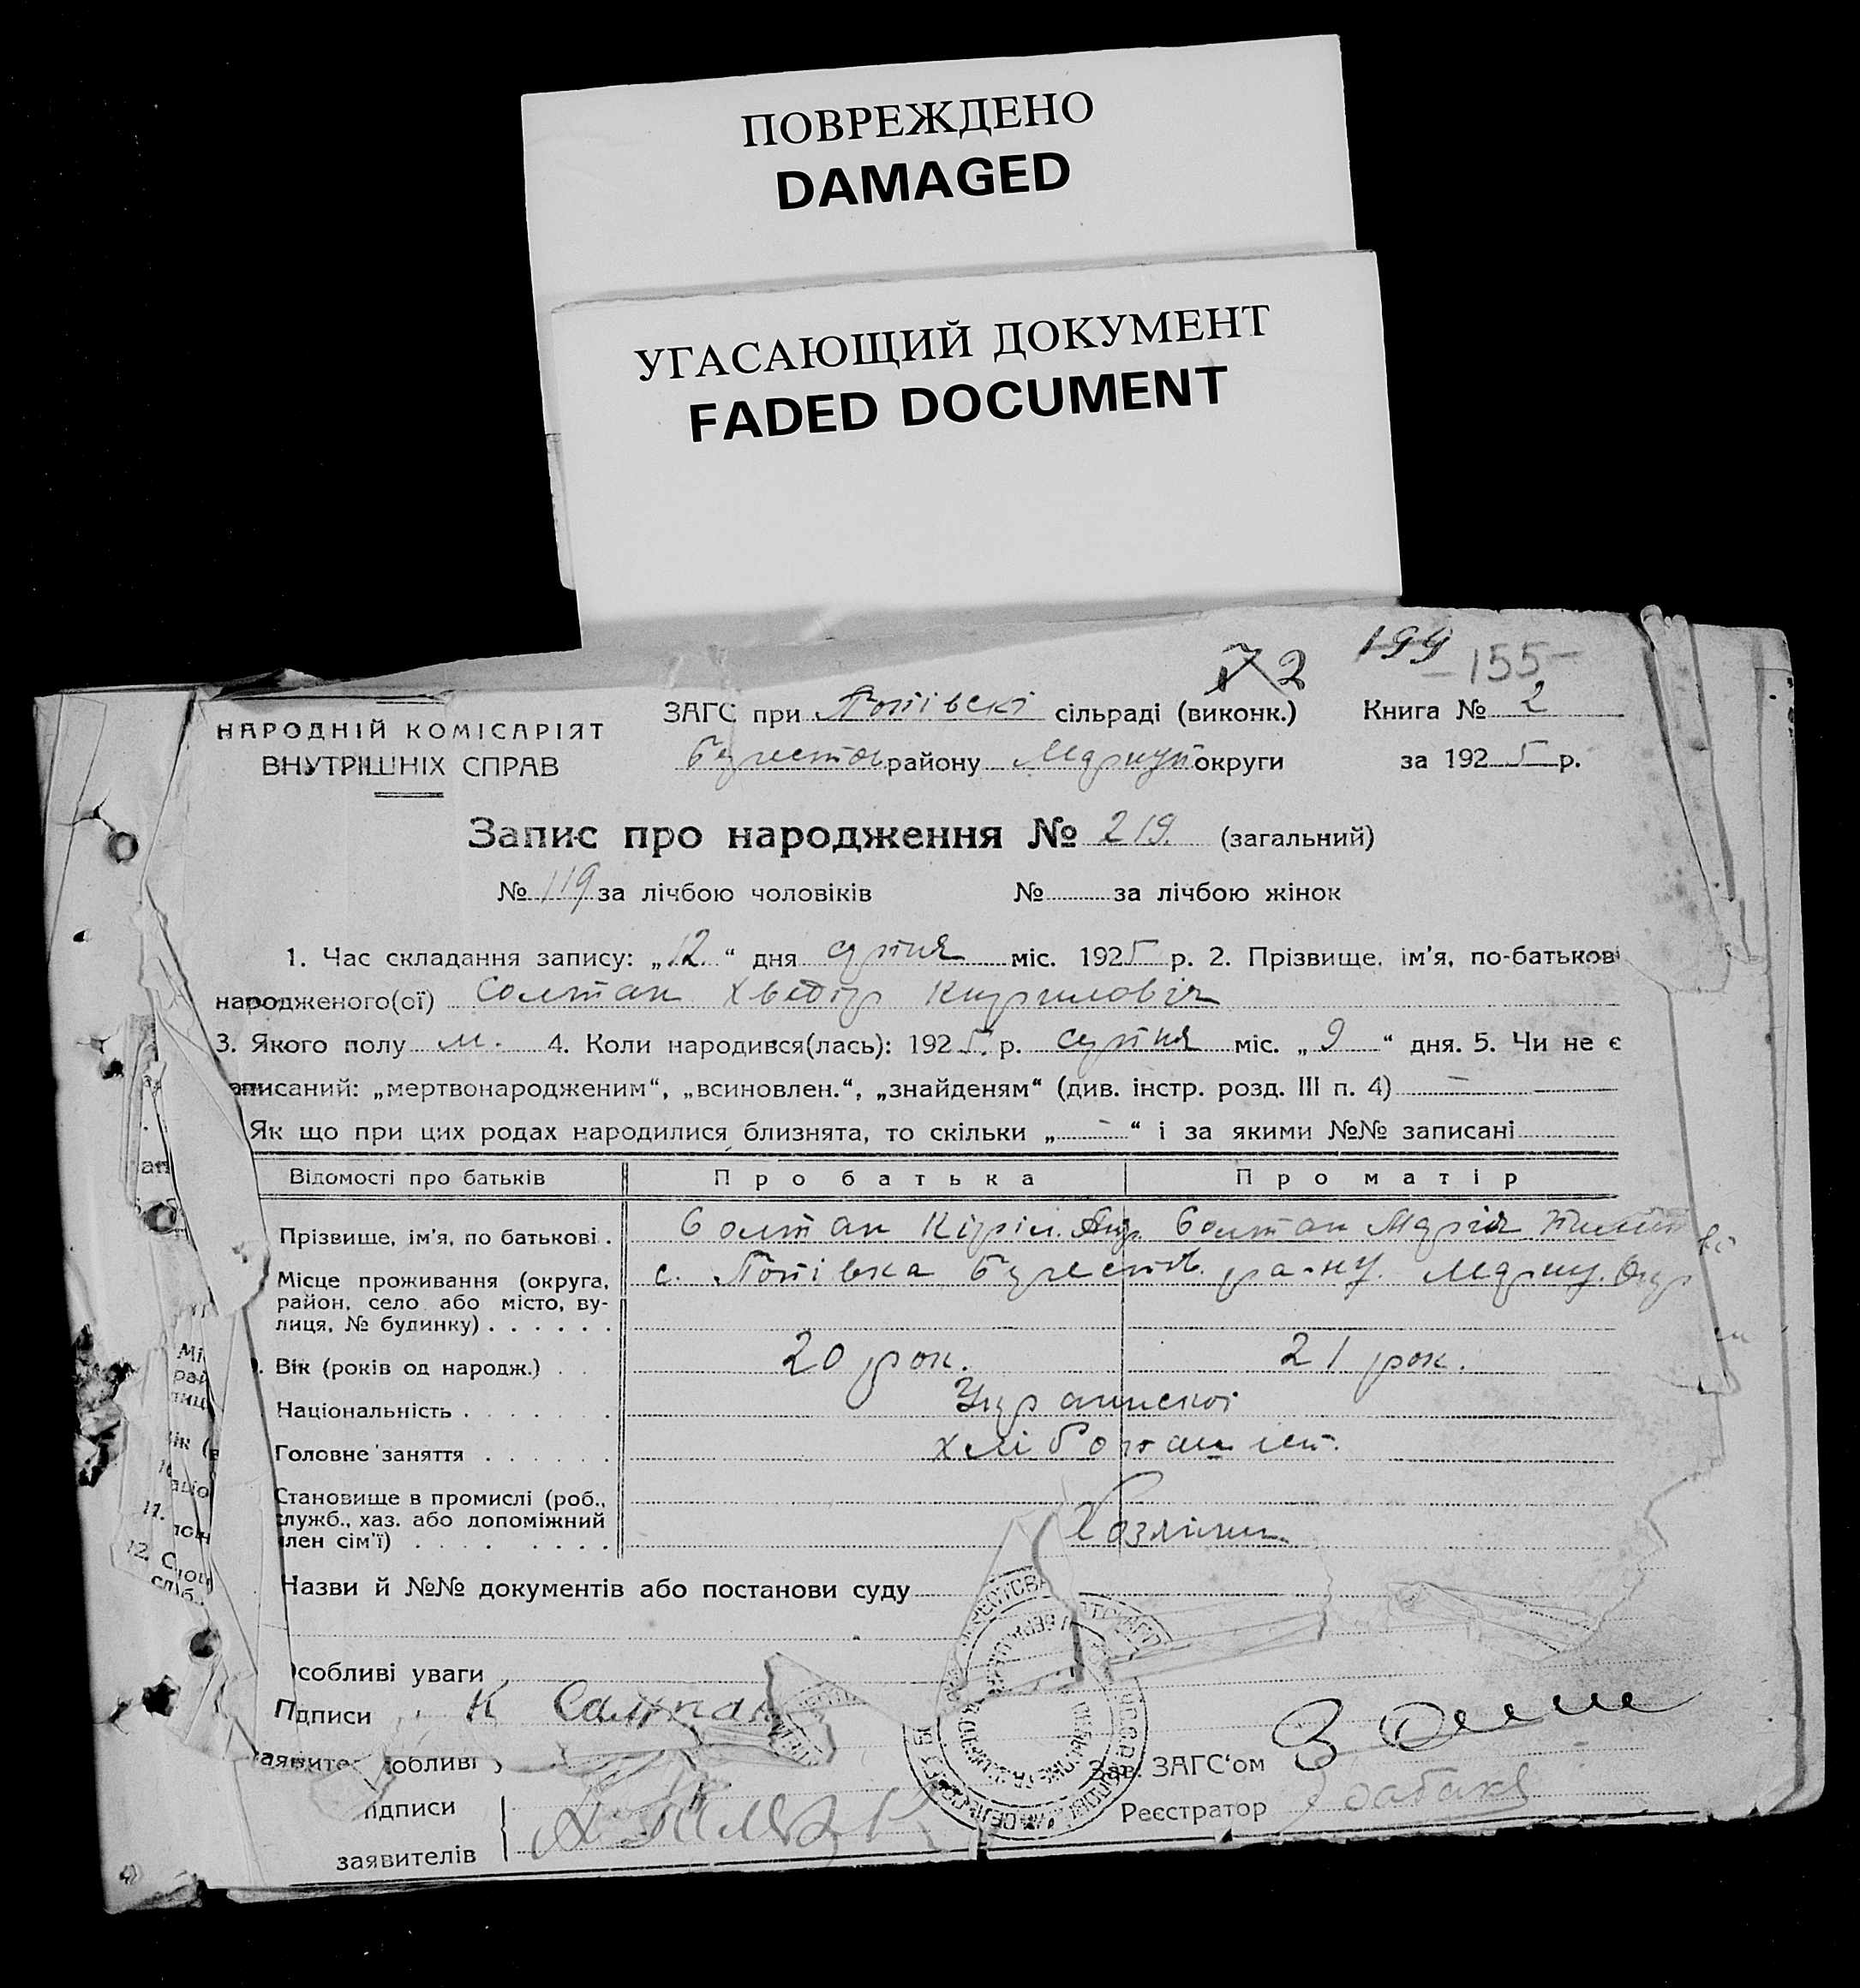 ПОВРЕЖДЕНО
DAMAGED
УГАСАЮЩИЙ ДОКУМЕНТ
FADED DOCUMENT
72 199 155
НАРОДНІЙ КОМІСАРІЯТ
ВНУТРІШНІХ СПРАВ
ЗАГС при Попівскі сільраді (виконк.) Книга № 2
району Маріуп округи за 1925 р.
Запис про народження № 219. (загальний)
№ 119 за лічбою чоловіків № за лічбою жінок
1. Час складання запису: „12.“ дня серпня міс. 1925 р. 2. Прізвище, ім'я, по-батькові
народженого(ої) Солтан Хведір Кирилович
3. Якого полу м. 4. Коли народився(лась): 1925. р. серпня міс. „9“ дня. 5. Чи не є
записаний: „мертвонародженим“, „всиновлен.“, „знайденям“ (див. інстр. розд. III п. 4) —
Як що при цих родах народилися близнята, то скільки „-“ і за якими №№ записані
Відомості про батьків Про батька Про матір
Прізвище, ім'я, по батькові . Солтан Кіріл. Солтан Марія
Місце проживання (округа, район, село або місто, ву-
лиця, № будинку) . . . . . .
с. Попівка ра-ну. Мариу. Окр
Вік (років од народж.) . . 20 рок. 21 рок.
Національність . . . . . .
Головне заняття . . . . . .
Становище в промислі (роб.,
служб., хаз. або допоміжний
член сім'ї) . . . . . . . .
Хозяіни
Назви й №№ документів або постанови суду
Особливі уваги
Підписи К Салтан
Зав. ЗАГС'ом
підписи
заявителів
Реєстратор